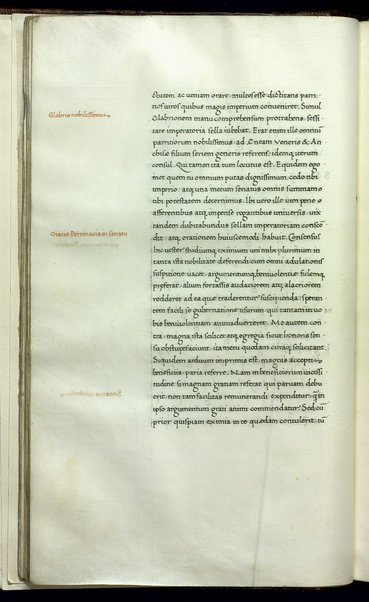 Glabrio nobilissimus
Oratio Pertinacis in senatu
etutem ac ueniam orare. multos esse dictitans patri
tios uiros quibus magis imperium conueniret. Simul
Glabrionem manu comprehensum protrahens sessi
tare imperatoria sella iubebat. Erat enim ille omnium
patritiorum nobilissimus. ad Aeneam Veneris & An
chise filium seriem generis referens. idemq iterum
consul. Qui tamen ita tum locutus est. Equidem ego
met quem tu omnium putas dignissimum. cedo tibi
imperio. atq una mecum senatus omnis summam o
tibi potestatem decernimus. Ibi uero illo uim pene
afferentibus atq impense rogantibus uniuersis. uix
tandem dubitabundus sellam imperatoriam conscē
dit. atq orationem huiuscemodi habuit. Consensus
hic uester studiumq eximium uni mihi plurimum in
tanta ista nobilitate deferendi cum omni adulationis
suspitione uacet. argumentumq beniuolentie fidemq
preferat. alium fortassis audaciorem atq alacriorem
redderet ad ea que traderentur suscipienda. speran
tem facili se gubernatione usurum. qui tam in tuo
bis beniuolentiam animaduerteret. Me autem con
tra. magna ista scilicet atq egregia sicut honoris sen
su obstupefaciunt. ita metu quodam curaq solicitant.
Siquidem arduum imprimis est. magnis acceptis
beneficiis. paria referre. Nam in beneficiorum uicissi
tudine si magnam gratiam referat qui paruam debu
erit. non tam facilitas remunerandi expenditur. q̄ in
ipso argumentum grati animi commendatur. Sed cū
prior quispiam eximia in te quedam contulerit. tū